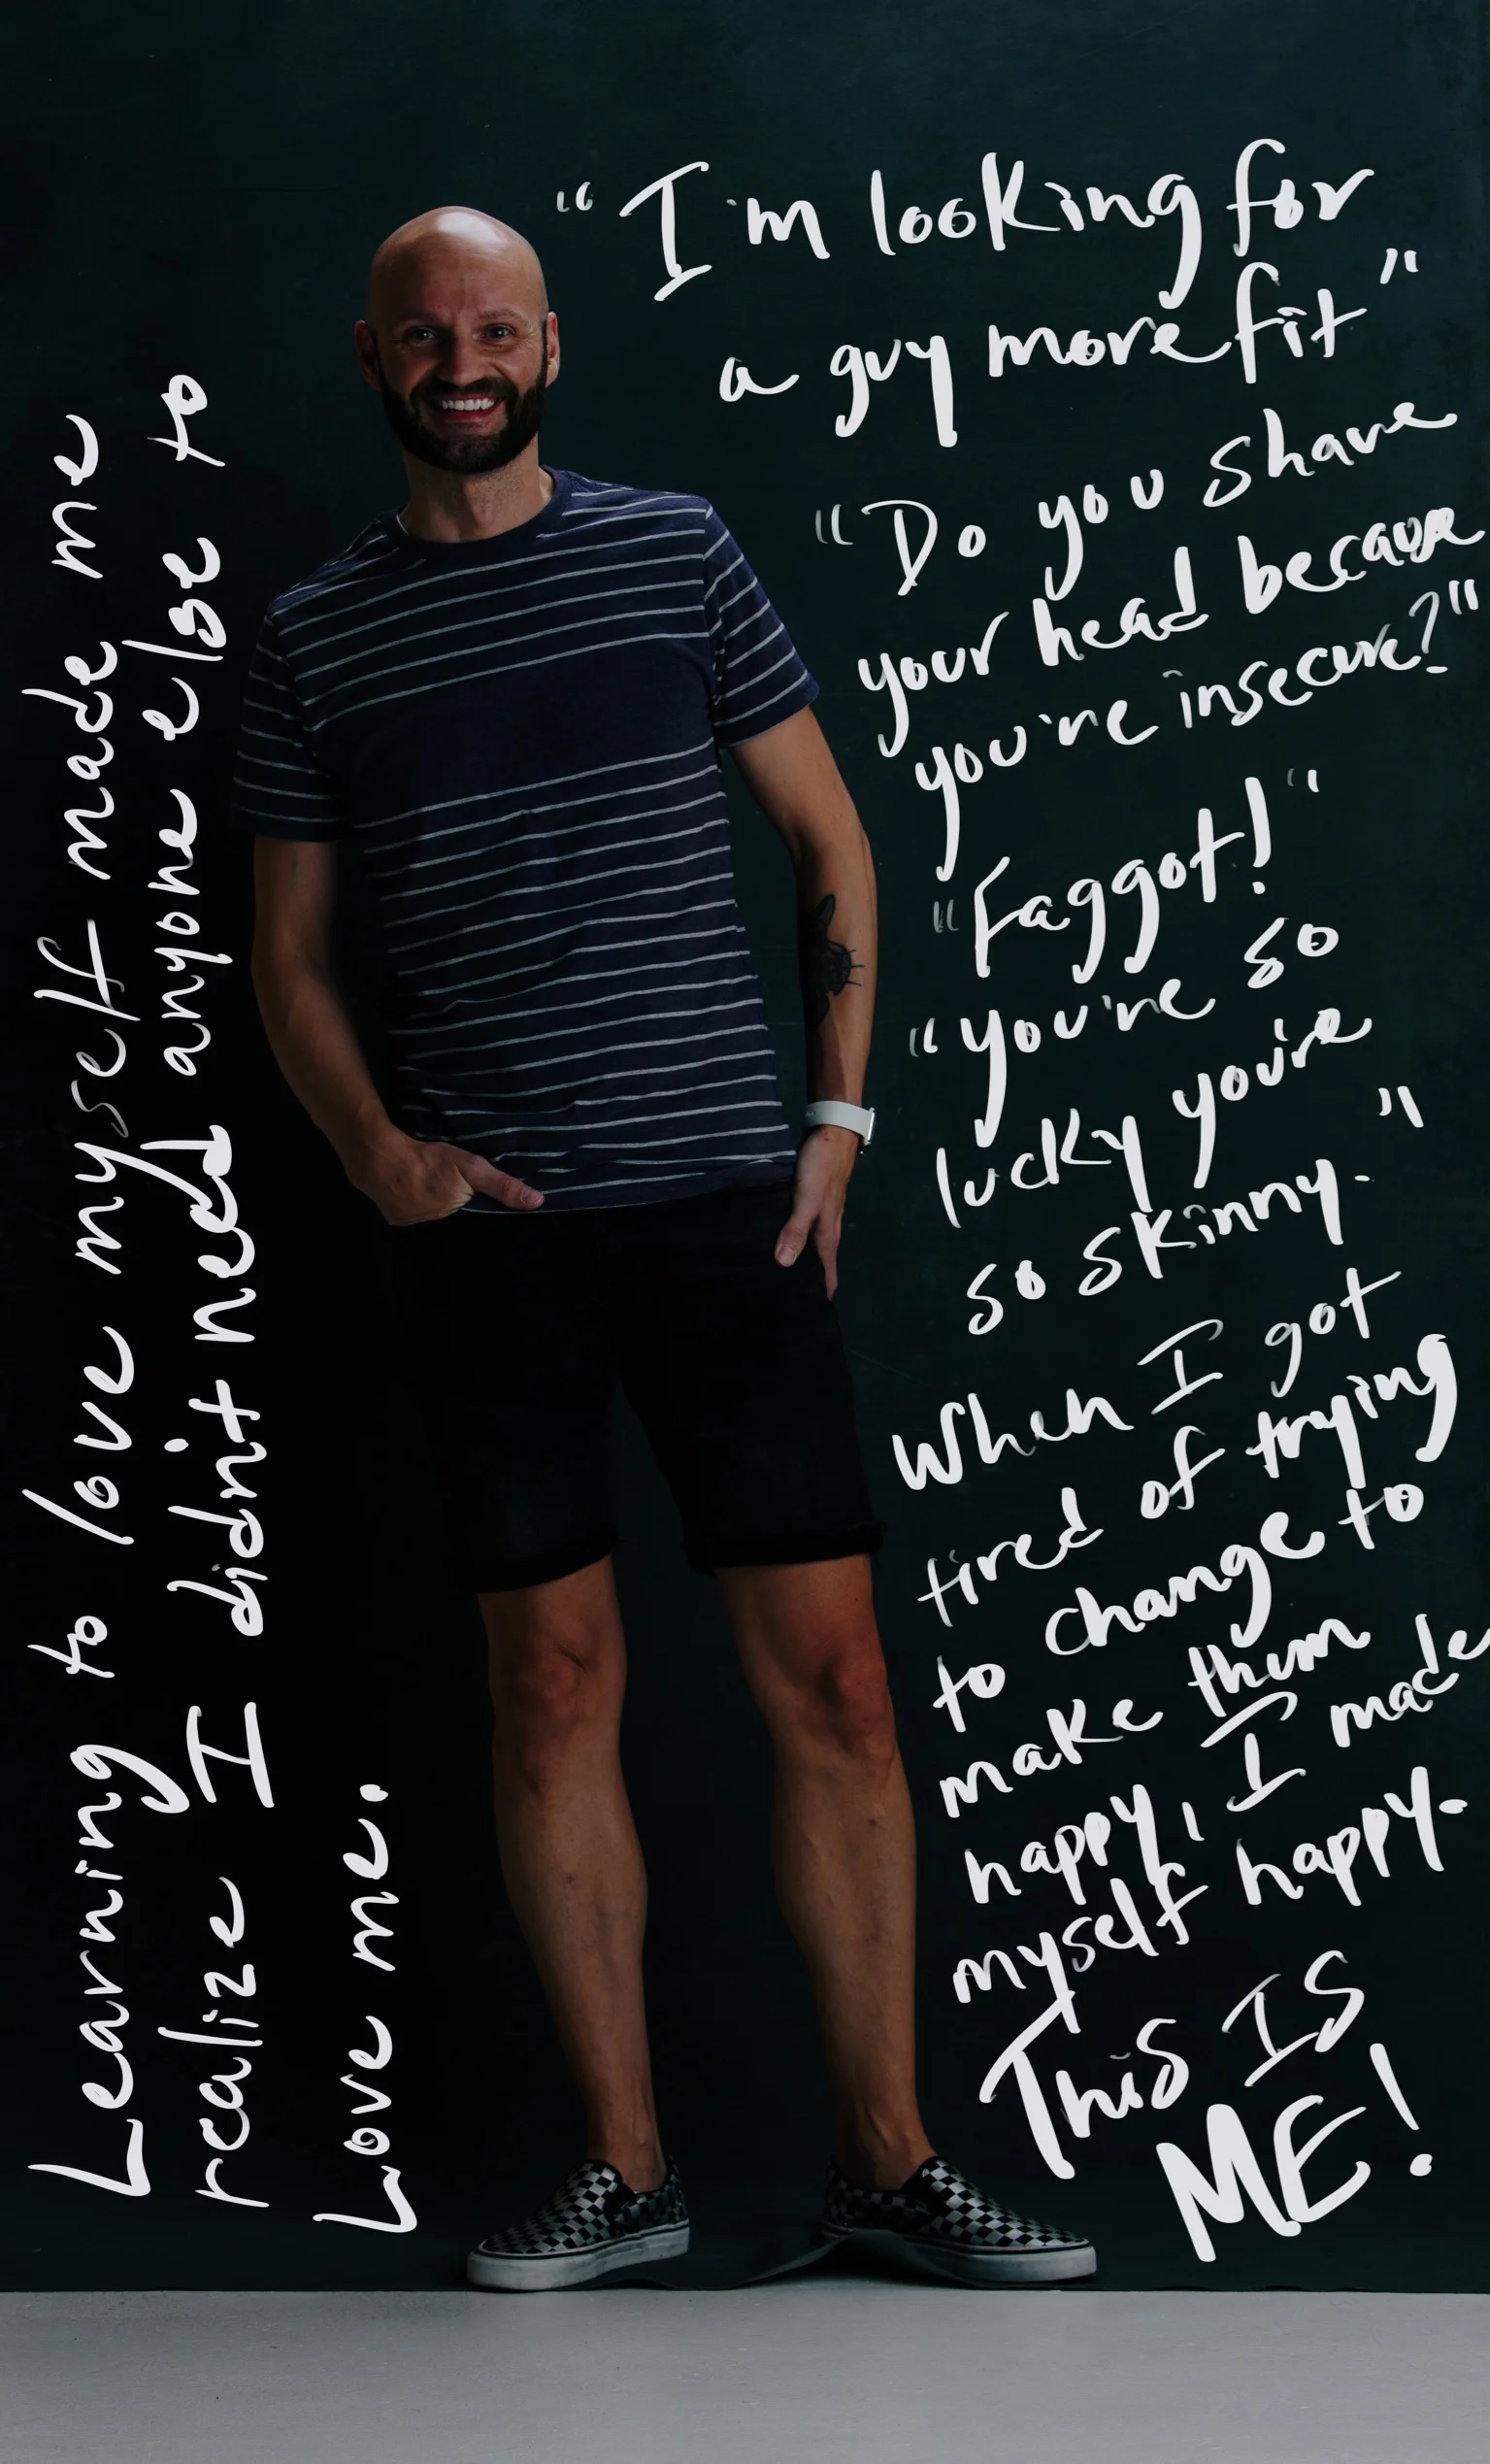 "I'm looking for
a guy more fit"
"Do you shave
your head because
you're insecure?"
"Faggot!"
"You're so
lucky you're
so skinny."
When I got
tired of trying
to change to
make them
happy, I made
myself happy.
This IS
ME!
Learning to love myself made me
realize I didn't need anyone else to
Love me.